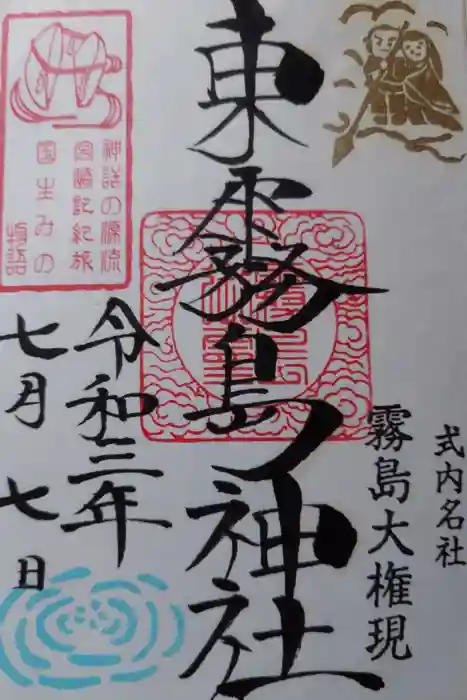 式内名社
霧島大権現
東霧島ノ神社
令和三年
七月七日
神話の源流
宮崎記紀旅
国生みの
物語